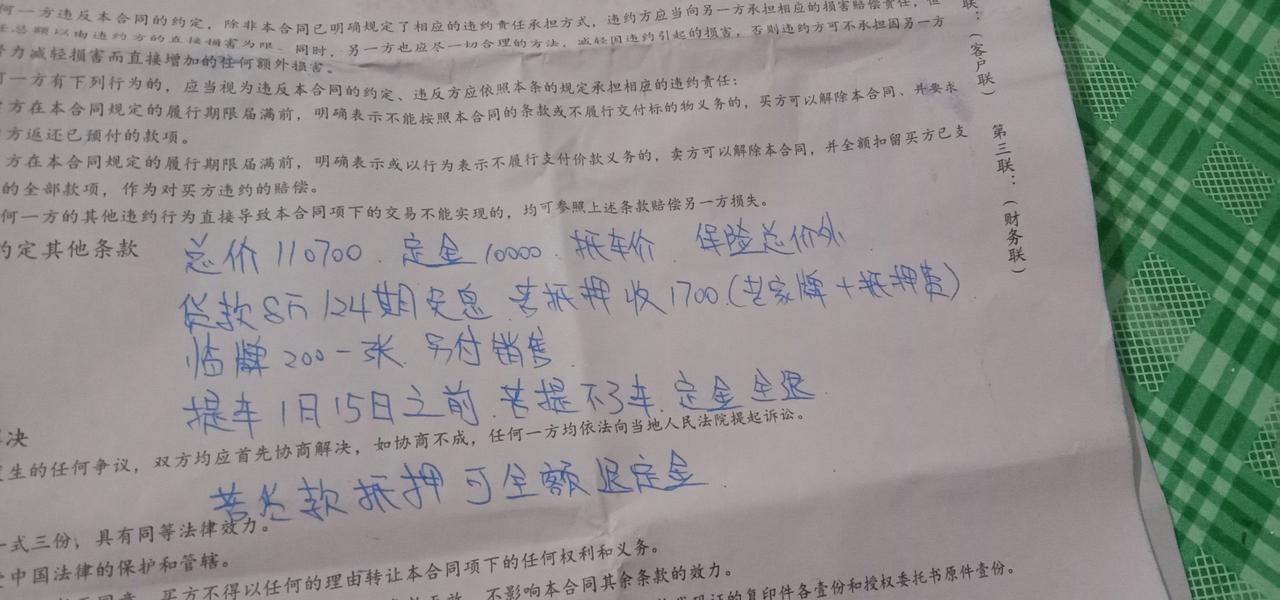 何一方违反本合同的约定,除非本合同已明确规定了相应的违约责任承担方式,违约方应当向另一方承担相应的损害赔偿责任,但
总额以由违约方的直接损害为限。同时,另一方也应尽一切合理的方法,减轻因违约引起的损害,否则违约方可不承担因另一方
努力减轻损害而直接增加的任何额外损害。
何一方有下列行为的,应当视为违反本合同的约定、违反方应依照本条的规定承担相应的违约责任:
方在本合同规定的履行期限届满前,明确表示不能按照本合同的条款或不履行交付标的物义务的,买方可以解除本合同、并要求
方返还已预付的款项。
方在本合同规定的履行期限届满前,明确表示或以行为表示不履行支付价款义务的,卖方可以解除本合同,并全额扣留买方已支
的全部款项,作为对买方违约的赔偿。
何一方的其他违约行为直接导致本合同项下的交易不能实现的,均可参照上述条款赔偿另一方损失。
约定其他条款
总价110700 定金10000 抵车价 保险总价外
贷款8万/24期 息 若抵押收1700(老家牌+抵押费)
临牌200一张 另付销售
提车1月15日之前 若提不了车 定金全退
决
发生的任何争议,双方均应首先协商解决,如协商不成,任何一方均依法向当地人民法院提起诉讼。
若贷款抵押可全额退定金
一式三份,具有同等法律效力。
中国法律的保护和管辖。
买方不得以任何的理由转让本合同项下的任何权利和义务。
不影响本合同其余条款的效力。
的复印件各壹份和授权委托书原件壹份。
联:(客户联)
第三联:(财务联)